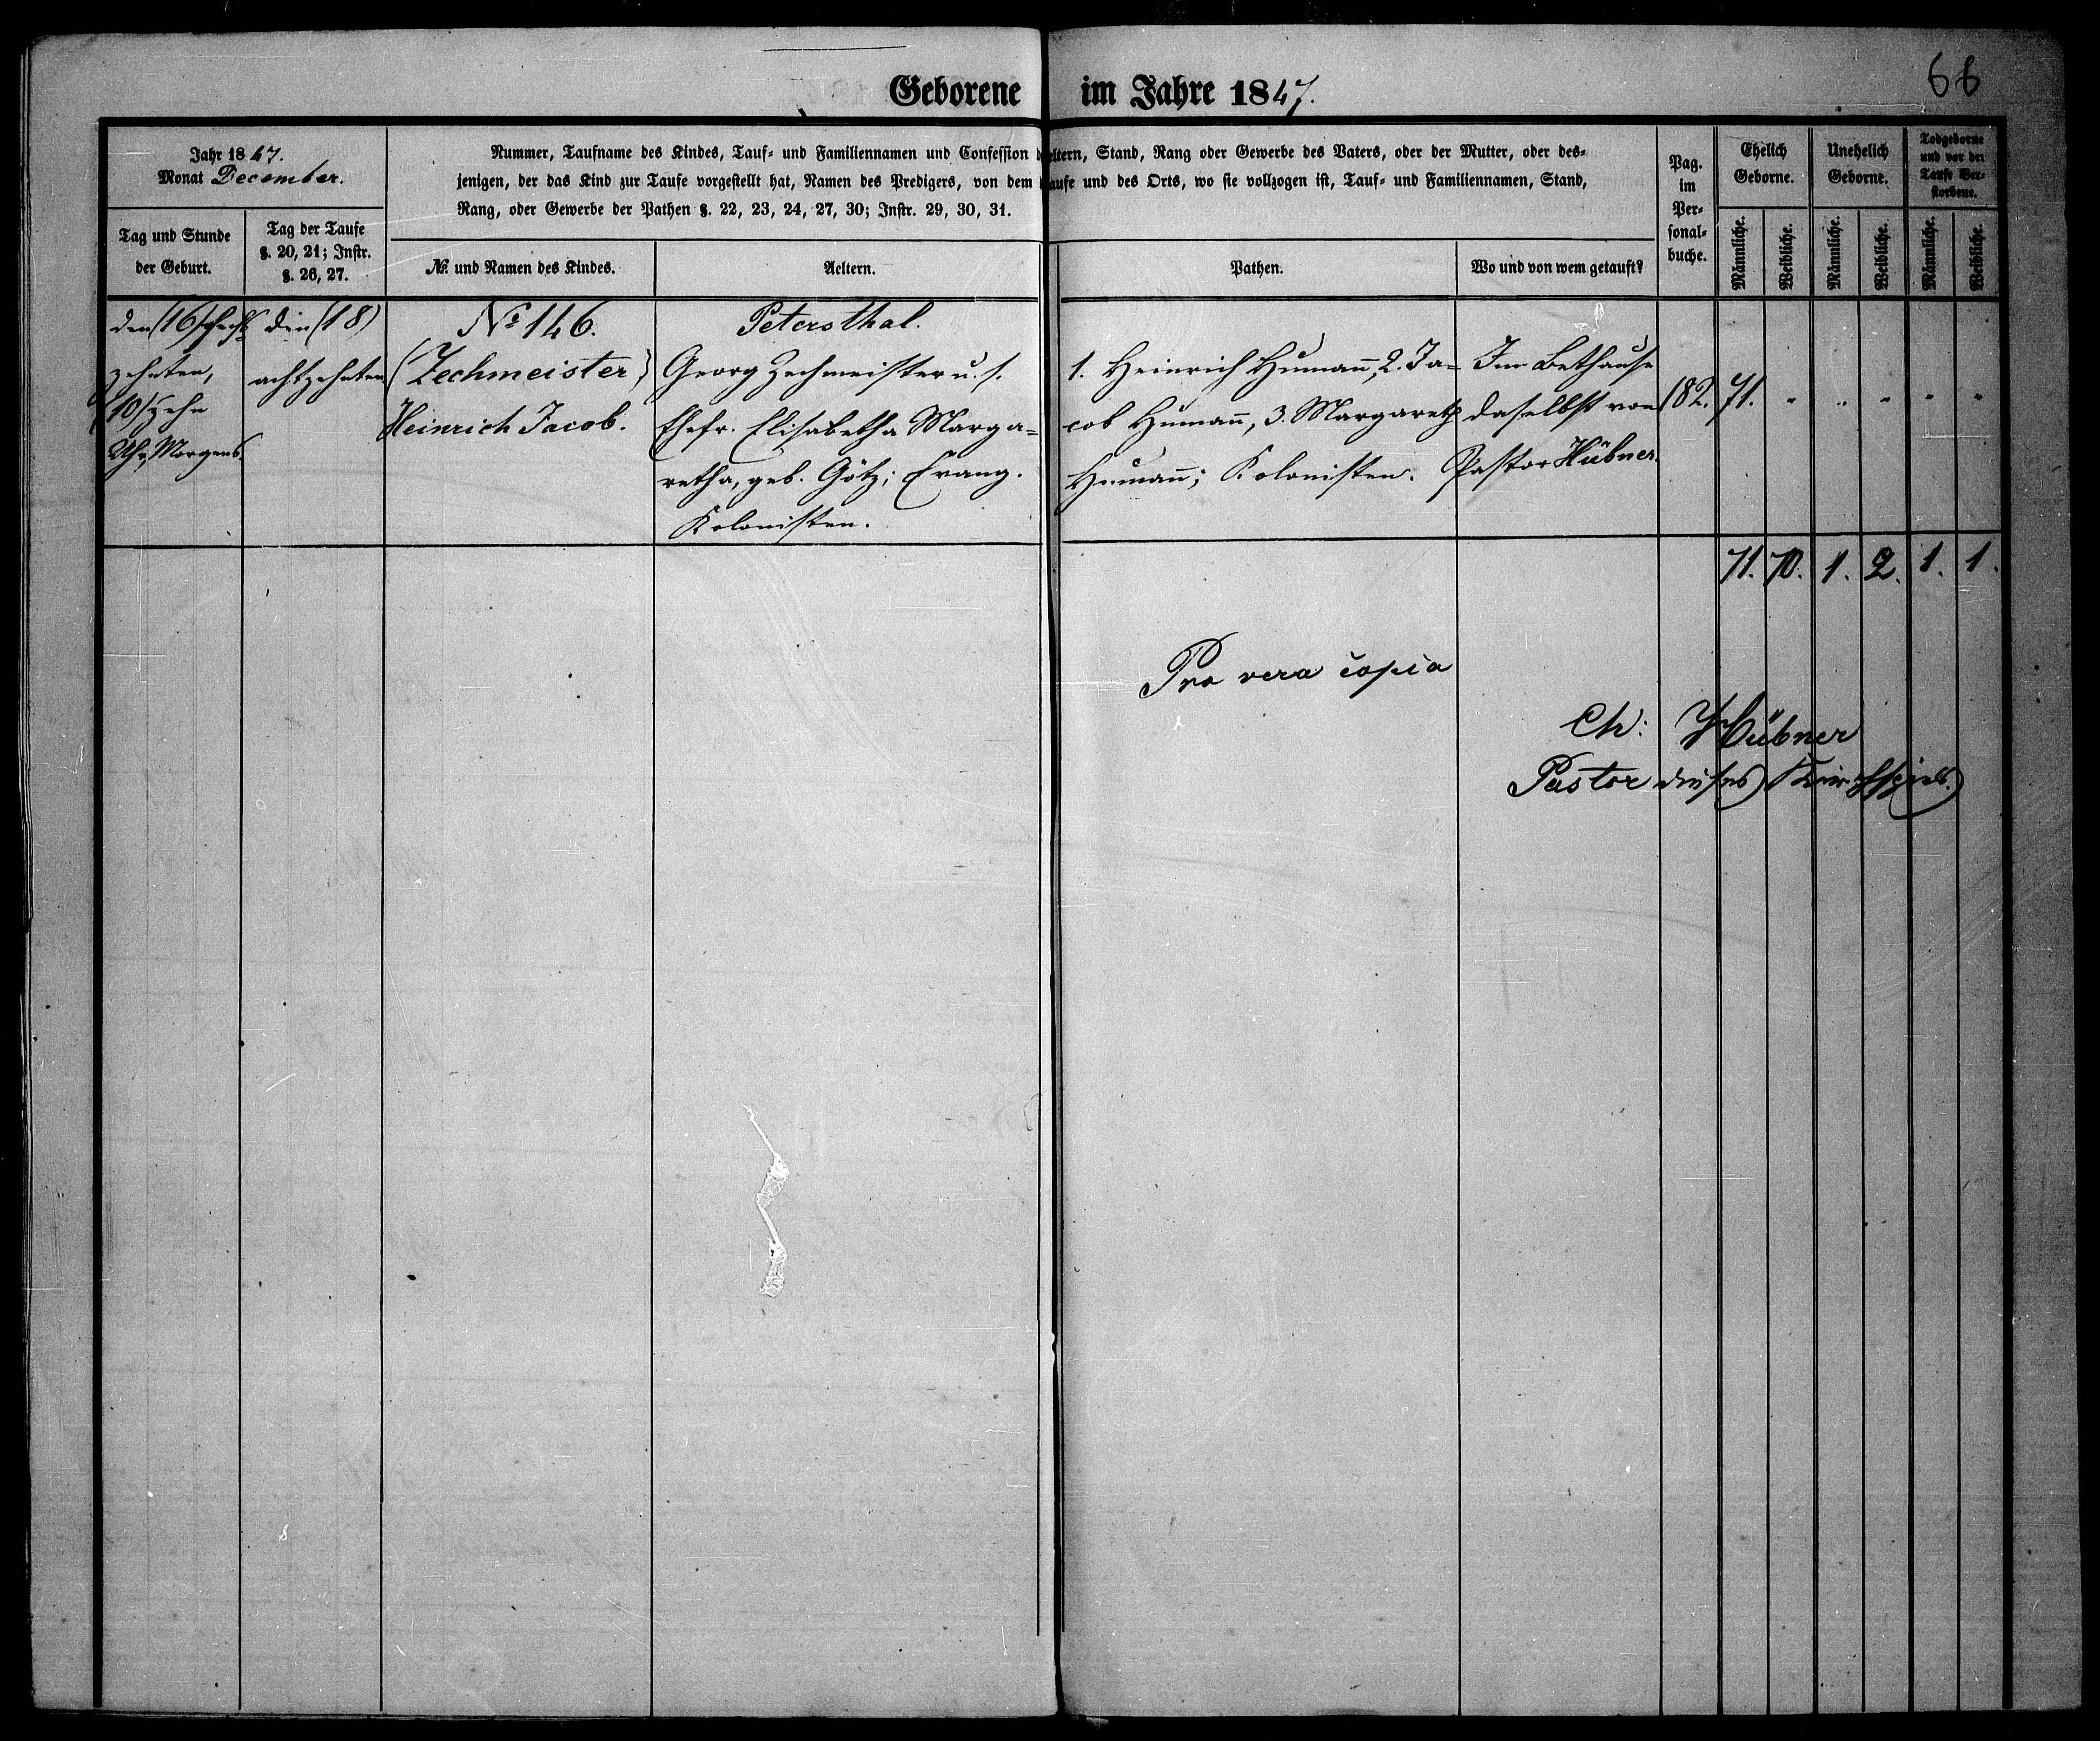 66
Geborene im Jahre 1847.
Jahr 1847.
Monat December.
Nummer, Taufname des Kindes, Tauf- und Familiennamen und Confession d eltern, Stand, Rang oder Gewerbe des Vaters, oder der Mutter, oder des-
jenigen, der das Kind zur Taufe vorgestellt hat, Namen des Predigers, von dem aufe und des Orts, wo sie vollzogen ist, Tauf- und Familiennamen, Stand,
Rang, oder Gewerbe der Pathen §. 22, 23, 24, 27, 30; Instr. 29, 30, 31.
Tag und Stunde
der Geburt.
Tag der Taufe
§. 20, 21; Instr.
§. 26, 27.
No. und Namen des Kindes.
Aeltern.
Pathen.
Wo und von wem getauft?
Pag.
im
Per-
sonal-
buche.
Ehelich
Geborne.
Unehelich
Geborne.
Todgeborne
und vor der
Taufe Ver-
storbene.
Männliche.
Weibliche.
Männliche.
Weibliche.
Männliche.
Weibliche.
den (16) sechs
zehnten,
(10) zehn
Uhr Morgens.
den (18)
achtzehnten
No 146.
(Zechmeister)
Heinrich Jacob.
Petersthal.
Georg Zechmeister u. s.
Ehefr. Elisabetha Marga=
retha, geb. Götz; Evang.
Kolonisten.
1. Heinrich Humañ, 2. Ja=
cob Humañ, 3. Margareth
Humañ; Kolonisten.
Im Bethause
daselbst von
Pastor Hübner.
182.
71. " " " " "
71. 70. 1. 2. 1. 1.
Pro vera copia
Ch: Hübner
Pastor dieses Kirchspiels.